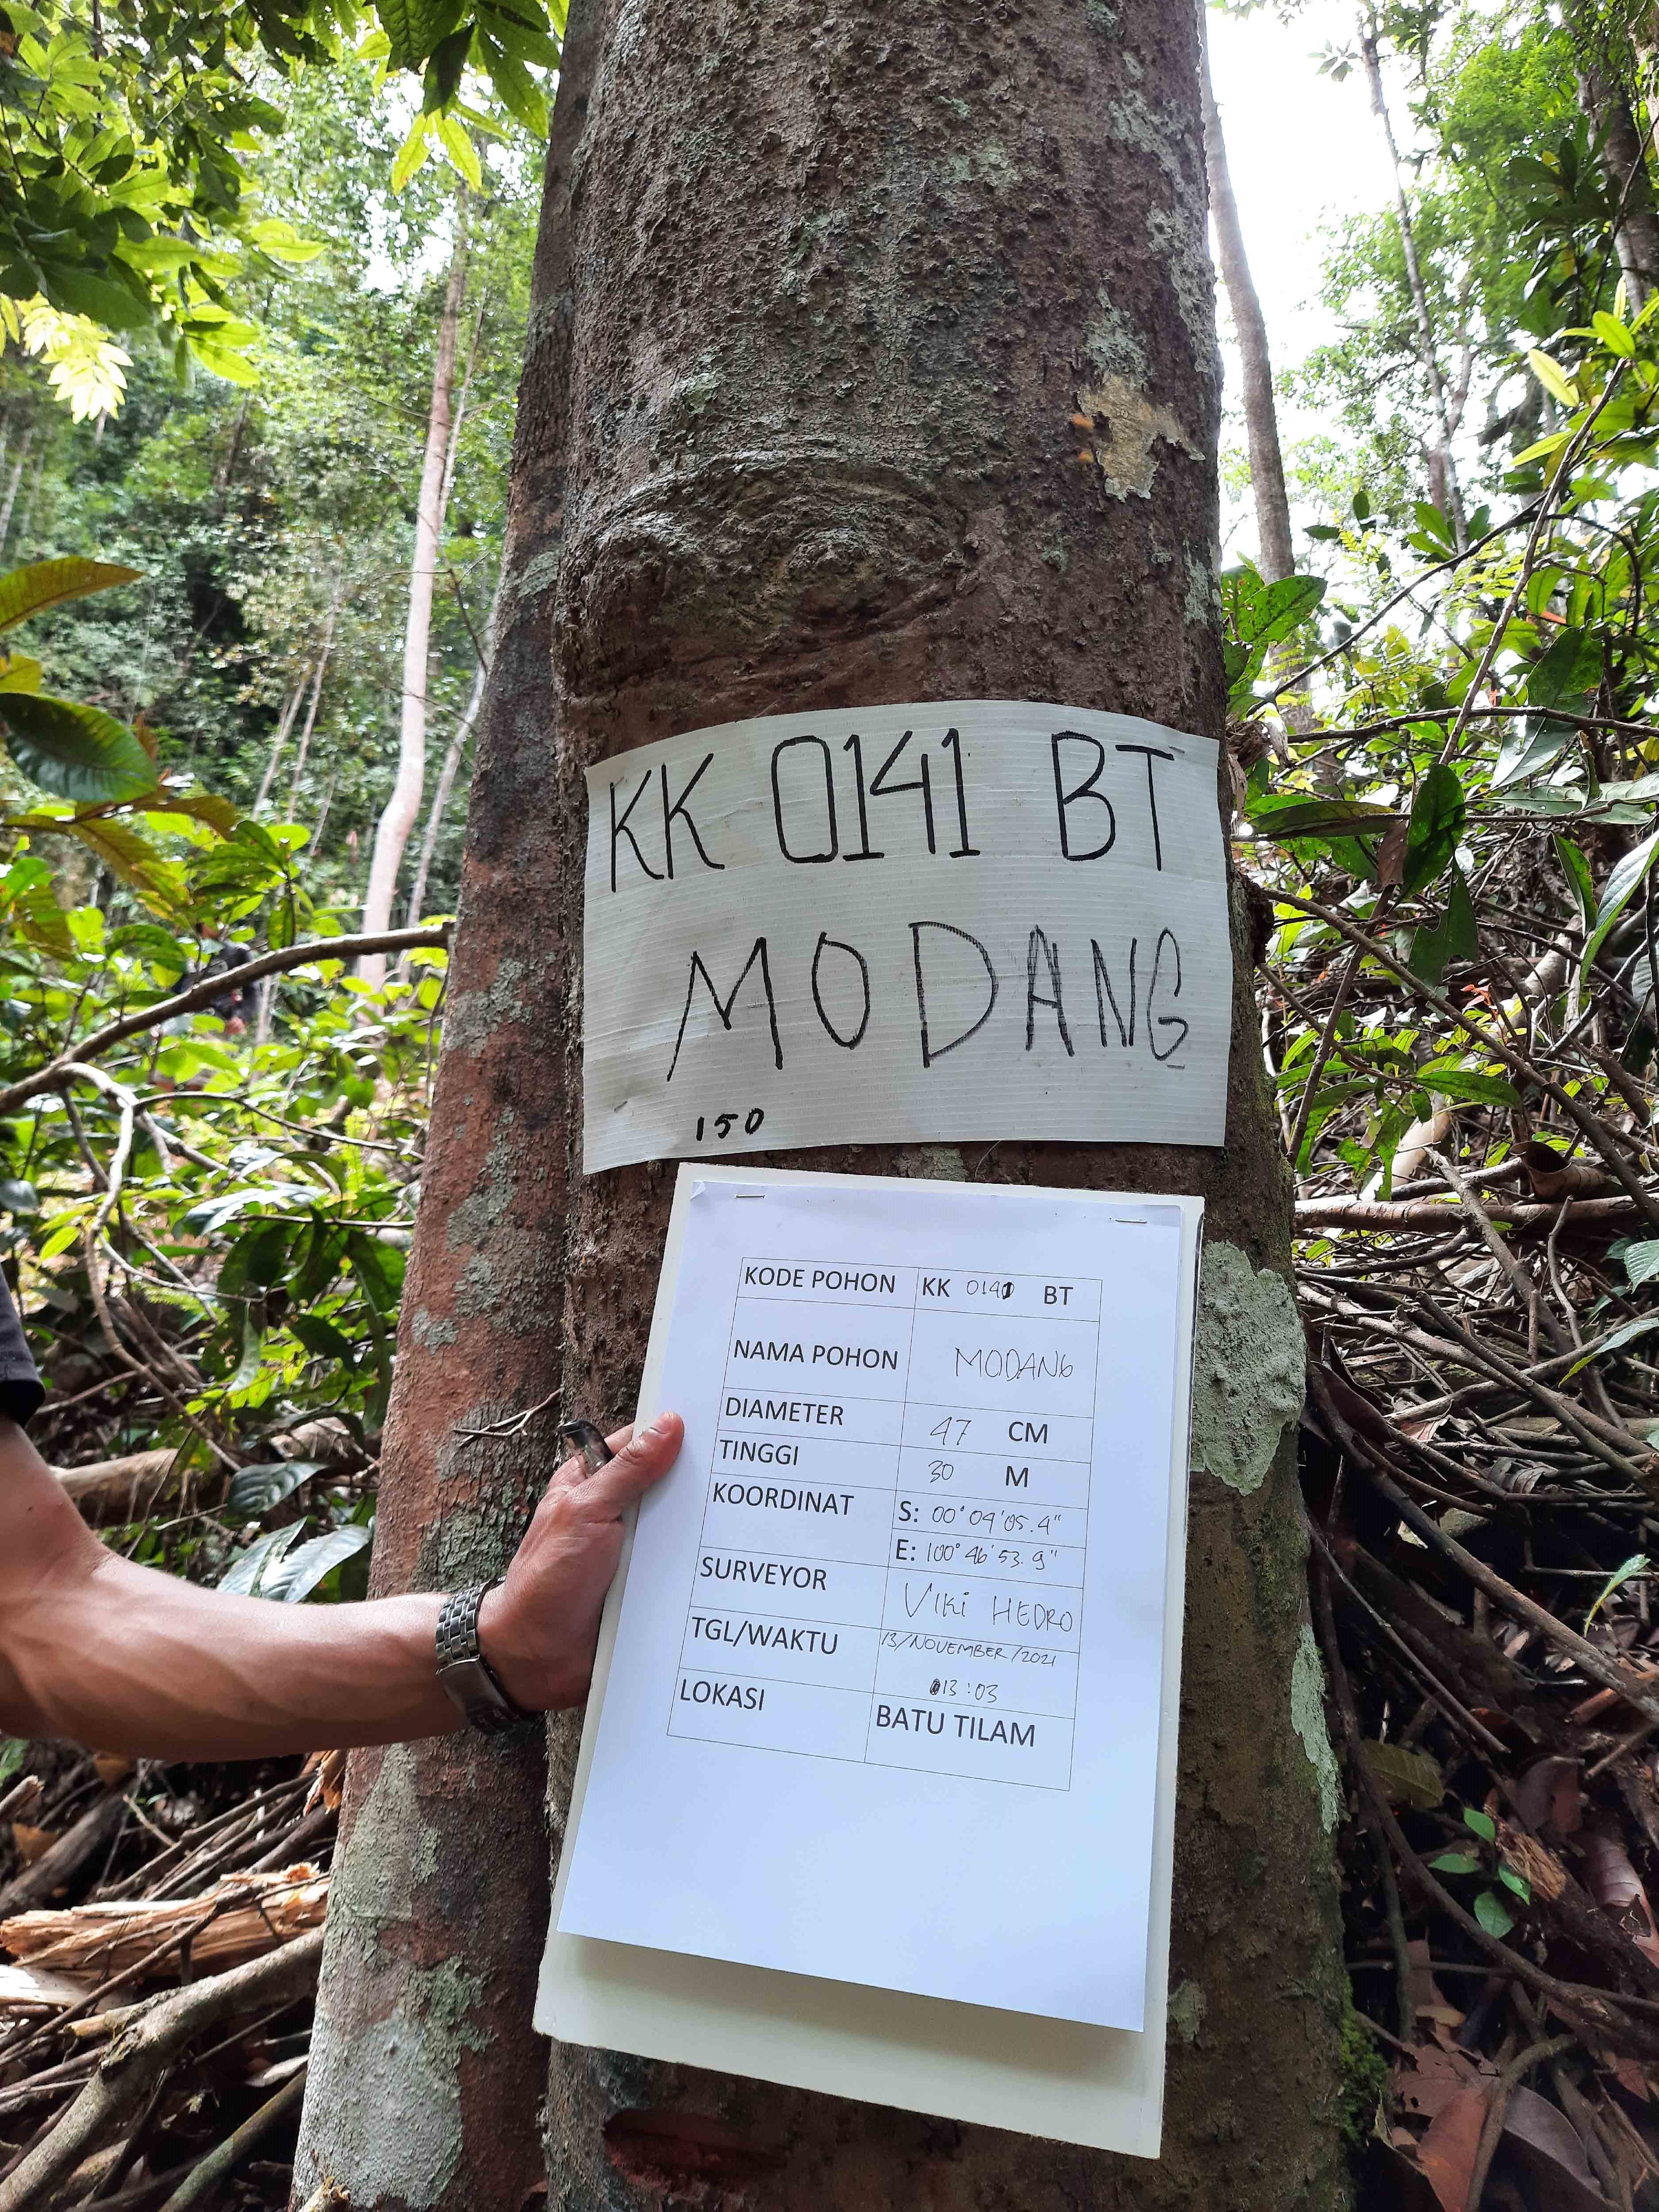 KK 0141 BT
MODANG
150
KODE POHON KK 0141 BT
NAMA POHON MODANG
DIAMETER 47 CM
TINGGI 30 M
KOORDINAT S: 00°04'05.4"
E: 100°46'53.9"
SURVEYOR VIKI HEDRO
TGL/WAKTU 13/NOVEMBER/2021
13:03
LOKASI BATU TILAM